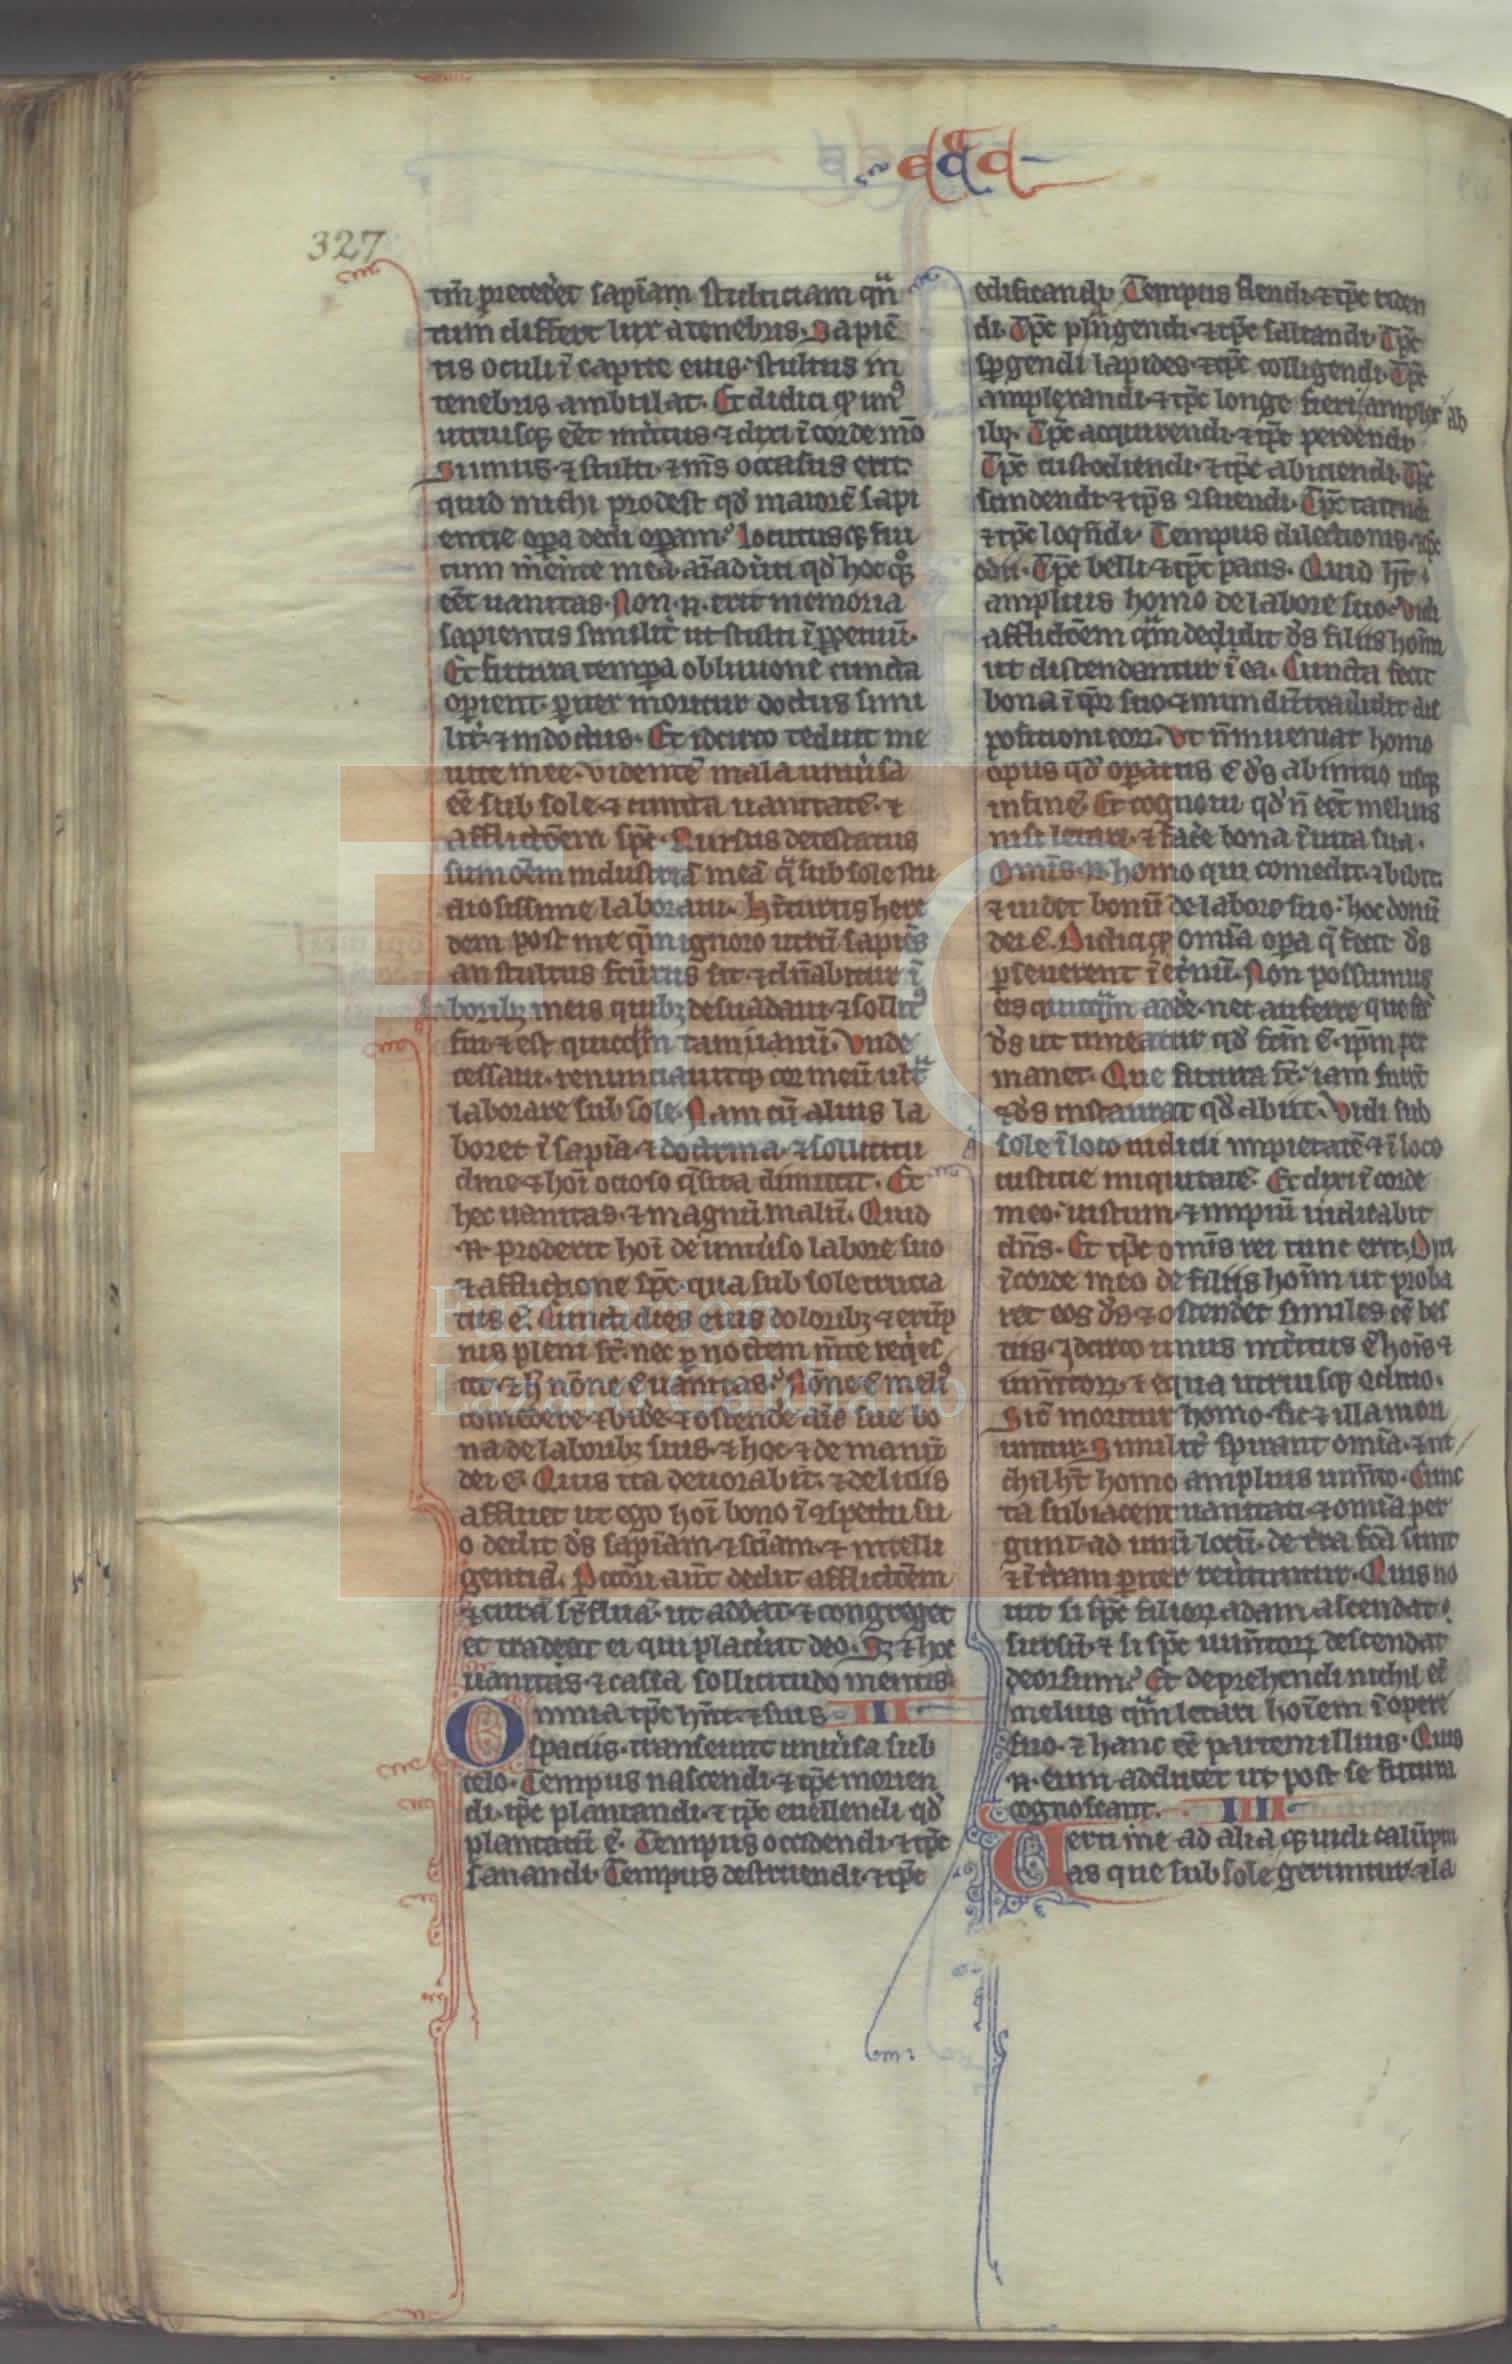 327
tm̄ precederet sapīam stulticiam quā
tum differt lux a tenebris. Sapiē
tis oculi ī capite eius. stultus in
tenebris ambulat. Et didici ꝙ un⁹
utriusqꝫ eēt intitus ⁊ dixi ī corde mō
Si unus ⁊ stulti ⁊ m̄s occasus erit.
quid michi prodest qđ maiorē sapi
entie opa dedi opam. locutusqꝫ sui
cum mente mea aīaduti qđ hoc qꝫ
eēt uanitas. Non .n. erit memoria
sapientis similit̄ ut stulti ī ppetuū.
Et futura tempa obliuione cuncta
opient. pit̄er moritur doctus simi
lit̄. ⁊ indoctus. Et idcirco teduit me
uite mee. videntē mala uniūsa
eē sub sole. ⁊ cuncta uanitatē. ⁊
afflictōem sp̄c. Rursus detestatus
sum oēm industriā meā q̄ sub sole stu
diosissime laboraui. hīturus here
dem post me qm̄ ignoro utrū sapiēs
an stultus fut̄urus sit. ⁊ dn̄abitur ī
laboribꝫ meis quibꝫ desudaui ⁊ sollit⁹
fui. ⁊ est quicq̄m tam uanū. Unde
cessaui. renunciauitqꝫ cor meū ult̄ᵃ
laborare sub sole. Nam cū alius la
boret ī sapīa. ⁊ doctrina. ⁊ sollicitu
dine. ⁊ hoī ocioso q̄sita dimittit. Et
hec uanitas. ⁊ magnū malū. Quid
.n. proderit hoī de uniūso labore suo
⁊ afflictione sp̄c. qua sub sole crucia
tus ē. Cuncti dies eius doloribꝫ ⁊ erūp
nis pleni st̄. nec p noctem m̄te reqes
cit. ⁊ h̄ nōne ē uanitas. Nōne ē meli⁹
comedere. ⁊ bibe. ⁊ ostende aīe sue bo
na de laboribꝫ suis. ⁊ hoc ⁊ de manū
dei ē. Quis ita deuorabit. ⁊ deliciis
affluet ut ego hoī bono ī ꝯspectu su
o dedit ds̄ sapīam. ⁊ sciam. ⁊ intelli
gentiā. Pctōri aūt dedit afflictōem
⁊ curā supfluā. ut addat. ⁊ congreget
et tradat ei qui placuit deo. Sꝫ ⁊ hoc
uanitas. ⁊ cassa sollicitudo mentis.
Omnia tp̄c hn̄t. ⁊ suis III
spaciis. transeunt uniūsa sub
celo. Tempus nascendi. ⁊ tp̄c morien
di. tp̄c plantandi. ⁊ tp̄c euellendi qđ
plantatū ē. Tempus occidendi. ⁊ tp̄c
sanandi. Tempus destruendi. ⁊ tp̄c
edificandi. Tempus flendi. ⁊ tp̄c riden
di. Tp̄c plāngendi. ⁊ tp̄c saltandi. Tp̄c
spgendi lapides. ⁊ tp̄c colligendi. Tp̄c
amplexandi. ⁊ tp̄c longe fieri amplex ab
ibꝫ. Tp̄c acquirendi. ⁊ tp̄c perdendi
Tp̄c custodiendi. ⁊ tp̄c abiciendi. Tp̄c
scindendi. ⁊ tp̄s ꝯsuendi. Tp̄c tacendi
⁊ tp̄c loq̄ndi. Tempus dilectionis. ⁊ tp̄c
odii. Tp̄c belli. ⁊ tp̄c pacis. Quid h̄t
amplius homo de labore suo. Vidi
afflictōem quā dedidit ds̄ filiis hoīm
ut distendantur ī ea. Cuncta fecit
bona ī tp̄r suo. ⁊ mundū tradidit dis
positioni eoꝝ. Ut n̄ inueniat homo
opus qđ opatus ē ds̄ ab inicio usqꝫ
in finē. Et cognoui qđ n̄ eēt melius
nisi letari. ⁊ face bona ī uita sua.
Omīs .n. homo qui comedit. ⁊ bibit.
⁊ uidet bonū de labore suo. hoc donū
dei ē. Didici ꝙ omīa opa q̄ fecit ds̄
pseuerent ī eternū. Non possumus
eis quicq̄m adde. nec auferre que fecit
ds̄ ut timeatur qđ fctm̄ ē. ipm̄ per
manet. Que futura st̄. iam fuert̄
⁊ ds̄ instaurat qđ abiit. Vidi sub
sole ī loco iudicii impietatē ⁊ ī loco
iusticie iniquitatē. Et dixi ī corde
meo. iustum. ⁊ impiū iudicabit
dn̄s. Et tp̄c omīs rei tunc erit. Dixi
ī corde meo de filiis hoīm ut proba
ret eos ds̄ ⁊ ostendet similes eē bes
tiis. Idcirco unus int̄itus ē hoīs ⁊
iumt̄oꝝ. ⁊ equa utriusqꝫ ꝯditio.
Sic moritur homo. sic ⁊ illa mori
untur. Similit̄ spirant omīa. ⁊ ni
chil h̄t homo amplius iumt̄o. Cunc
ta subiacent uanitati. ⁊ omīa per
gunt ad unū locū. de t̄ra fcā sunt
⁊ ī t̄ram pit̄er reūtuntur. Quis no
uit si sp̄c filioꝝ adam ascendat
sursū. ⁊ si sp̄c iumt̄oꝝ descendat
deorsum. Et deprehendi nichil eē
melius quā letari hoīem ī opere
suo. ⁊ hanc eē partem illius. Quis
.n. eum adducet ut post se futura
cognoscant. IIII
Uerti me ad alia qꝫ uidi calūpni
as que sub sole geruntur. ⁊ la
Fundación
Lázaro Galdiano